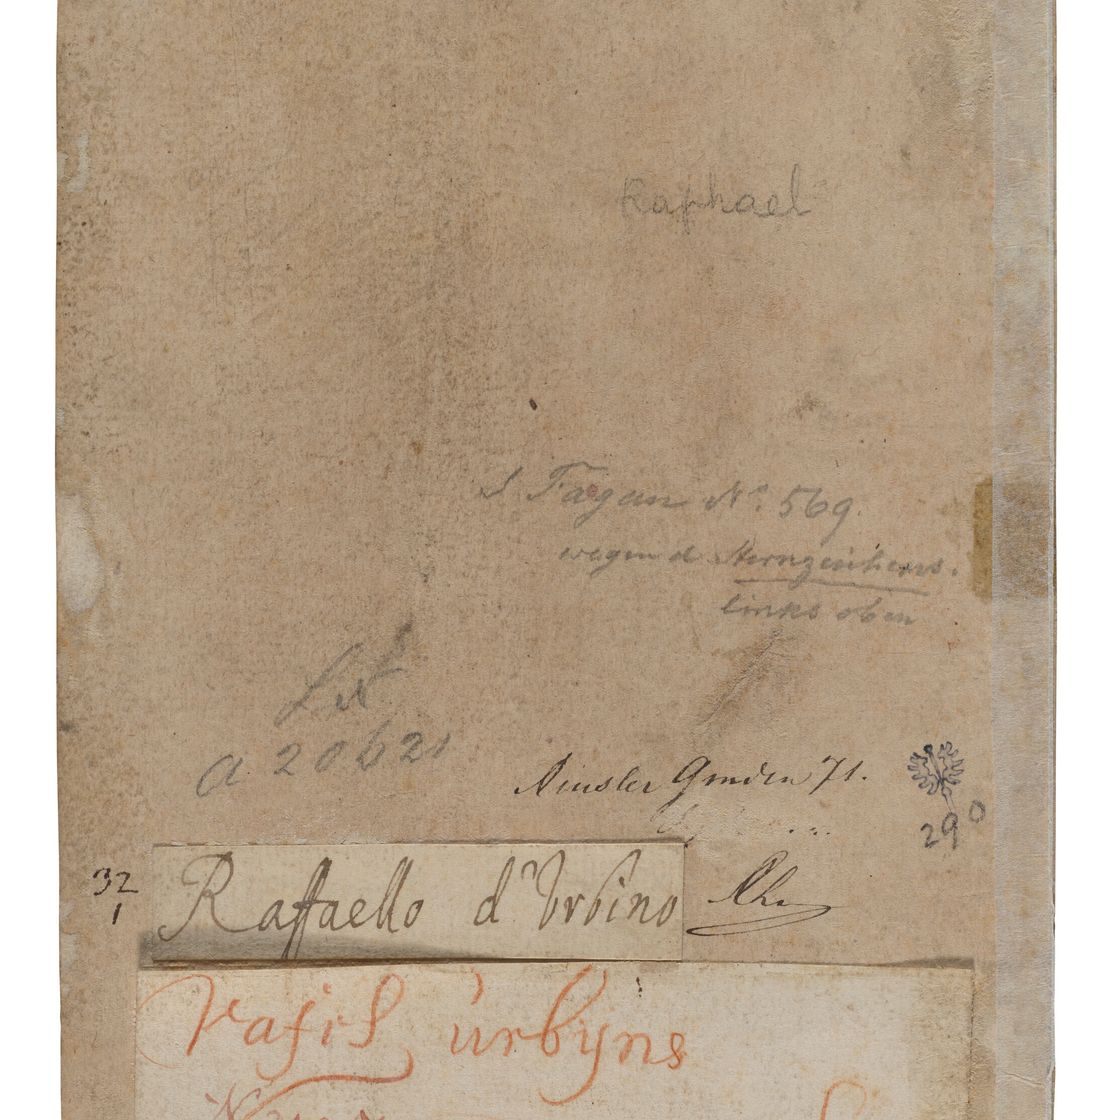 Raphael
S Fagan No. 569.
wegen d Sternzeichens.
links oben
a 20621
Amsler Gmden 71.
290
32
1
Raffaello d'Vrbino
rafil urbyns